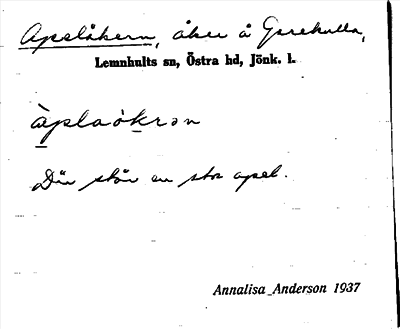 Apelåkern, åker å Garekulla,
Lemnhults sn, Östra hd, Jönk. l.
àplaókrən
Där står en stor apel.
Annalisa Anderson 1937